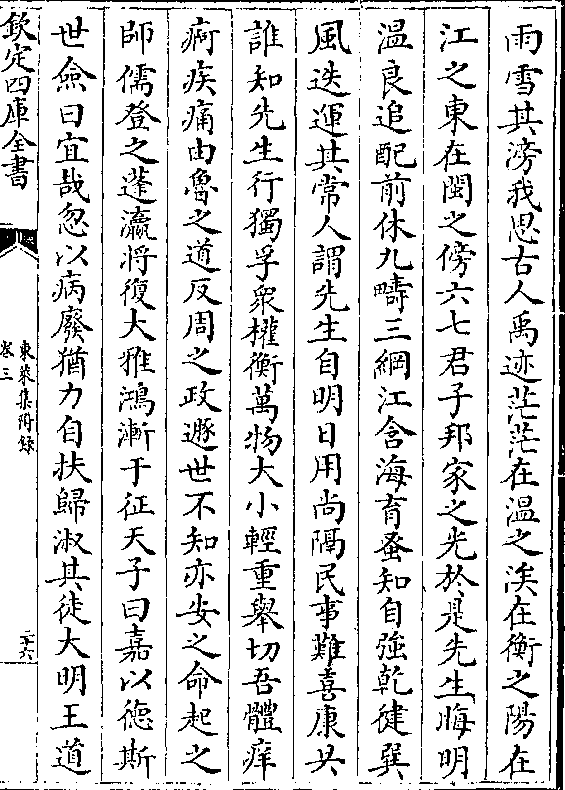 雨雪其滂我思古人禹迹茫茫在溫之涘在衡之陽在
江之東在閩之傍六七君子邦家之光於是先生晦明
溫良追配前休九疇三綱江含海育蚤知自強乾健巽
風迭運其常人謂先生自明日用尚隔民事難喜康共
誰知先生行獨孚衆權衡萬物大小輕重舉切吾體痒
疴疾痛由魯之道反周之政遯世不知亦安之命起之
師儒登之蓬瀛將復大雅鴻漸于征天子曰嘉以德斯
世僉曰宜哉忽以病廢猶力自扶歸淑其徒大明王道
欽定四庫全書
東萊集附錄
卷三
二十六